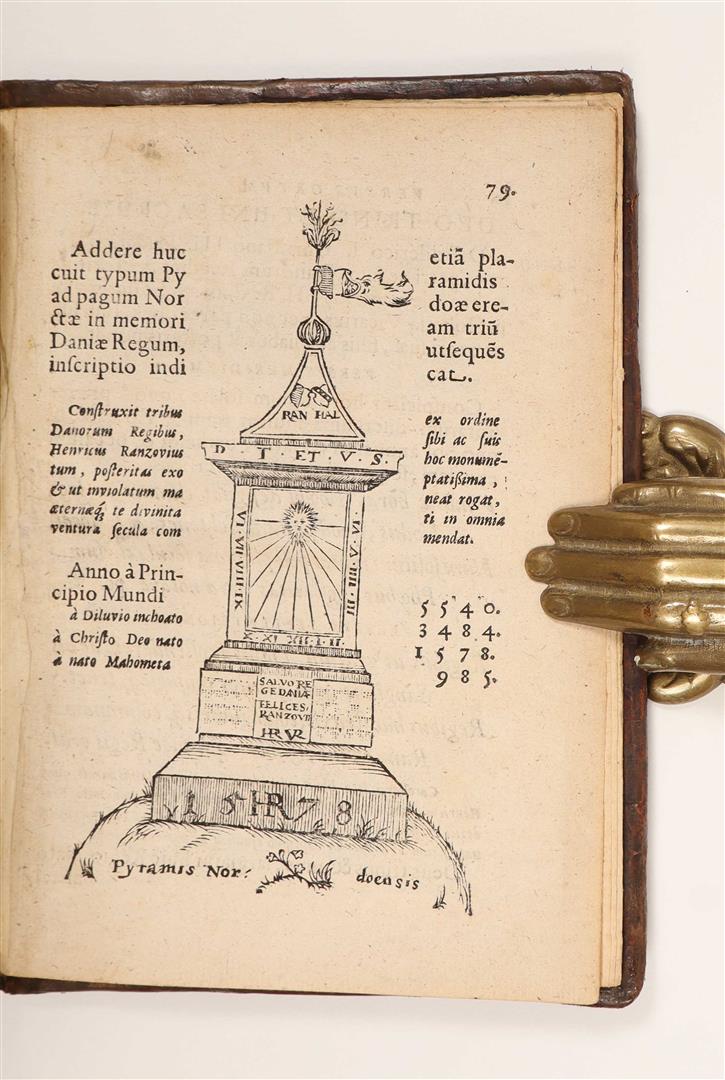 79.
Addere huc etiā pla-
cuit typum Py ramidis
ad pagum Nor doæ ere-
ctæ in memori am triū
Daniæ Regum, utsequēs
inscriptio indi cat.
Construxit tribus ex ordine
Danorum Regibus, sibi ac suis
Henricus Ranzovius hoc monumē-
tum, posteritas exo ptatissima,
& ut inviolatum ma neat rogat,
æternæq́; te divinita ti in omnia
ventura secula com mendat.
Anno à Prin-
cipio Mundi 5540.
à Diluvio inchoato 3484.
à Christo Deo nato 1578.
à nato Mahometa 985.
RAN HAL
D · T · ET · V · S ·
VI VII VIII IX
X XI XII I II
SALVO RE
GE DANIÆ
FELICES·
RANZOVII
HR VR
15 HR 78
Pyramis Nor: doensis